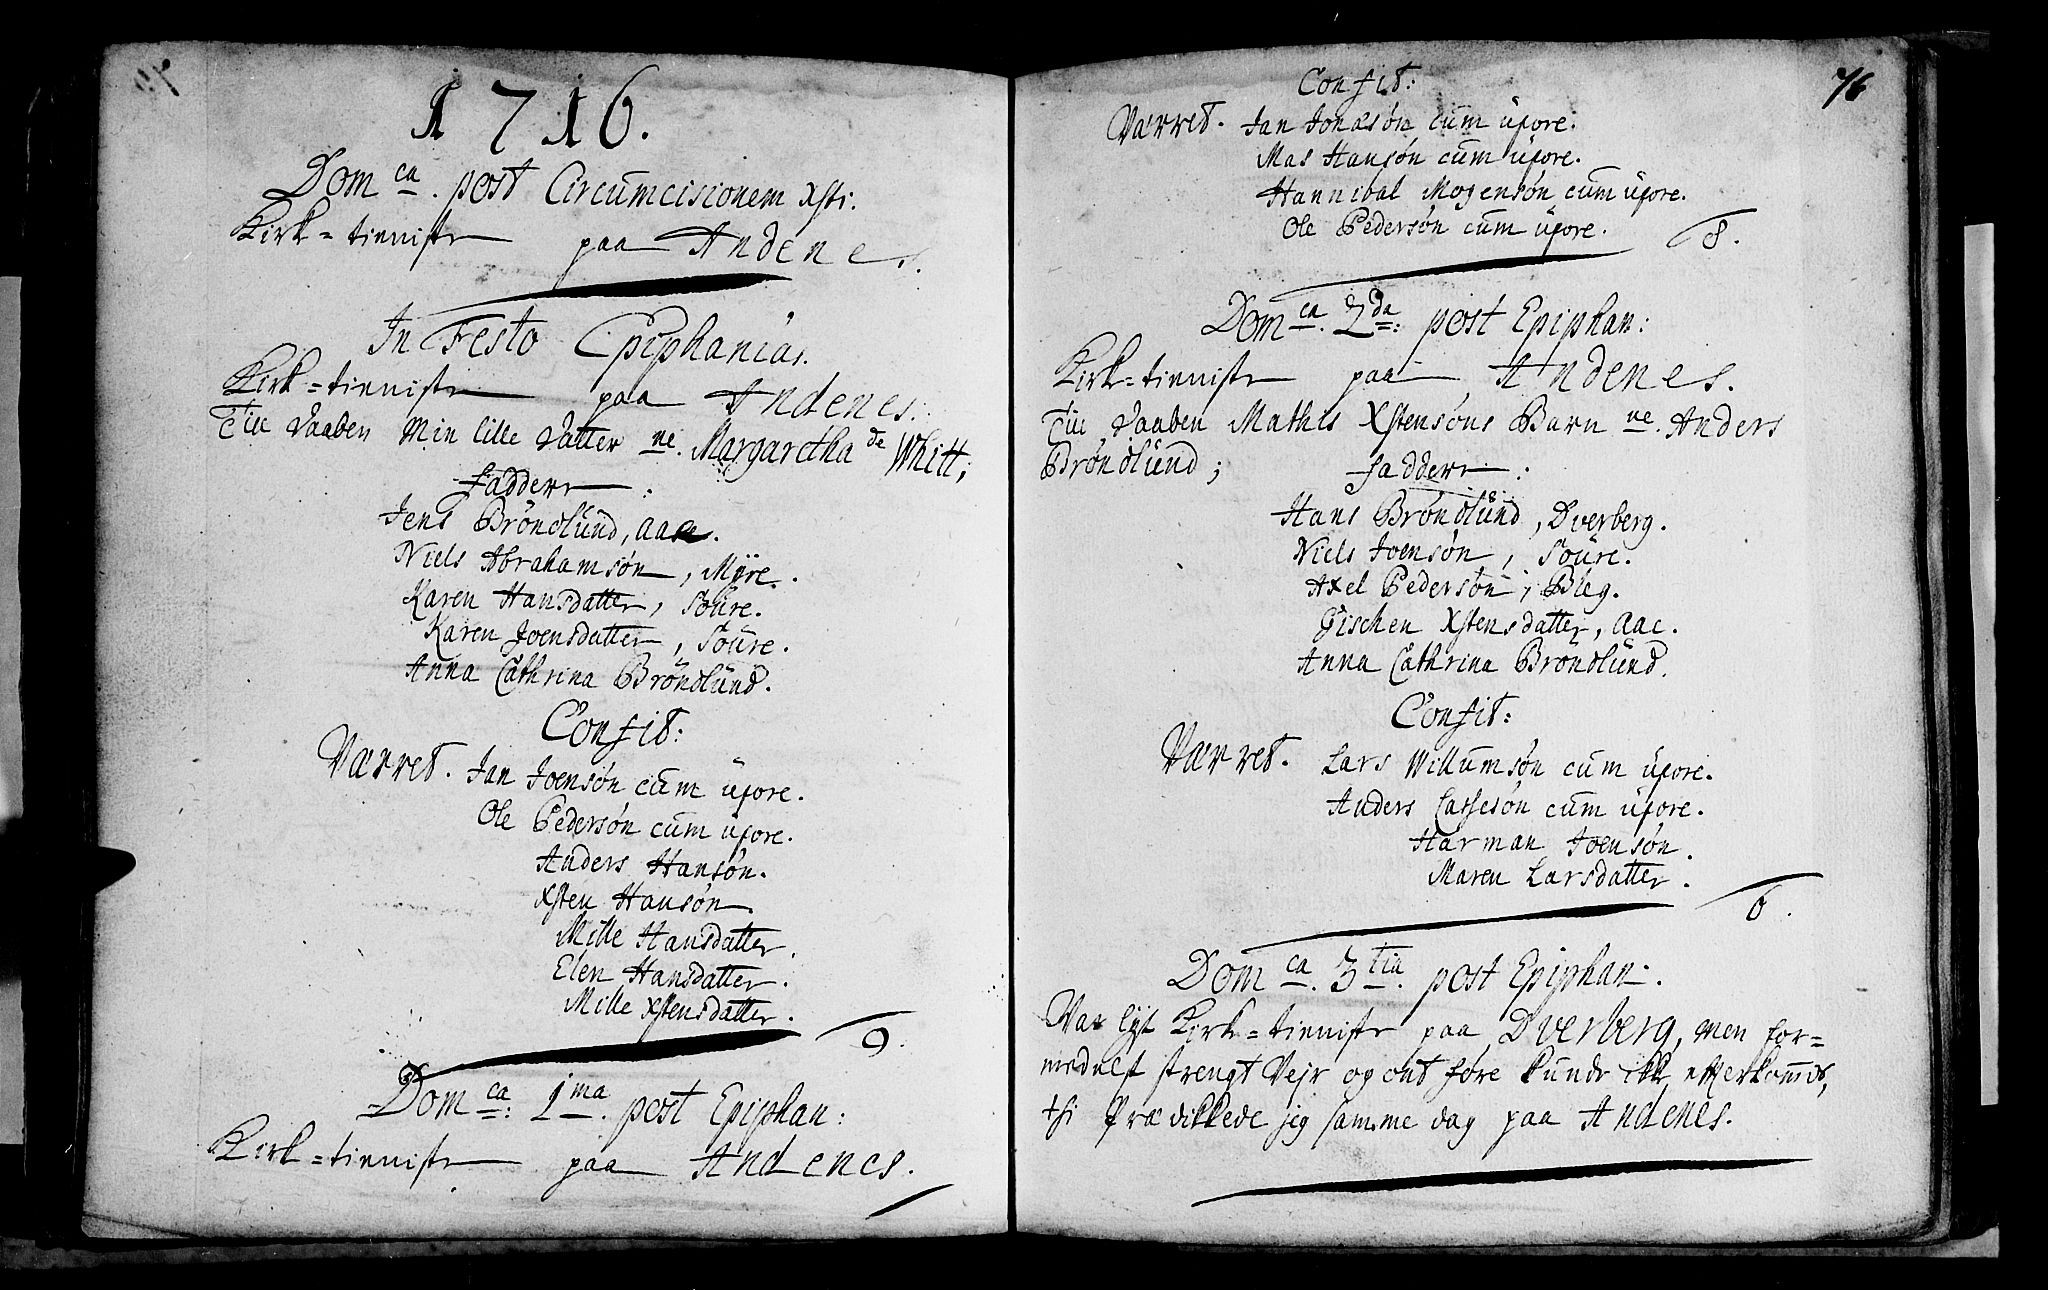 1716.
Dom ca. post Circumcisionem Xsti.
Kirk=tieniste paa Andenes.
In Festo Epiphanias.
Kirk=tieniste paa Andenes.
Till Daaben Min lille Datter ne. Margaretha de Whitt;
Faddere:
Jens Bröndlund, Aae.
Niels Abrahamsøn, Myre.
Karen Hansdatter, Soure.
Karen Joensdatter, Soure.
Anna Cathrina Bröndlund.
Confit:
Værret. Jan Joensøn cum uxore.
Ole Pedersøn cum uxore.
Anders Hansøn.
Xsten Hansøn.
Mille Hansdatter.
Elen Hansdatter.
Mille Xstensdatter.
9.
Dom ca: 1 ma. post Epiphan:
Kirk=tieniste paa Andenes.
76
Confit:
Værret. Jan Jonæsøn cum uxore.
Mas Hansøn cum uxore.
Hannibal Mogensøn cum uxore.
Ole Pedersøn cum uxore.
8.
Dom ca. 2 da: post Epiphan:
Kirk=tieniste paa Andenes.
Till Daaben Mathis Xstensøns Barn ne. Anders
Bröndlund; Faddere:
Hans Bröndlund, Dverberg.
Niels Joensøn, Soure.
Axel Pedersøn, Bleg.
Gischen Xstensdatter, Aae.
Anna Cathrina Bröndlund.
Confit:
Værret. Lars Willumsøn cum uxore.
Anders Lassesøn cum uxore.
Harman Joensøn.
Maren Larsdatter.
6.
Dom ca. 3 tia. post Epiphan:
Var lyst Kirk=tieniste paa Dverberg, men for=
medelst strengt Vejr og ont føre kunde ikke efterkommis,
thi prædikkede jeg samme dag paa Andenes.